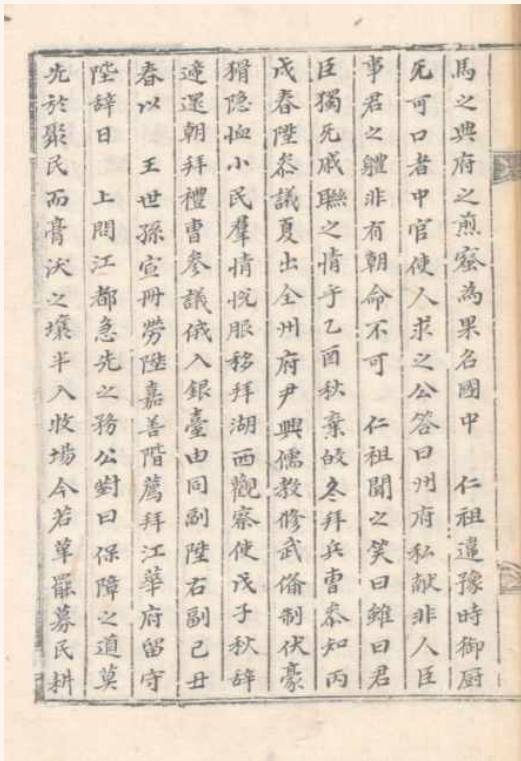 馬之典府之煎蜜為果名國中　仁祖違豫時御廚
乏可口者中官使人求之公答曰州府私献非人臣
事君之軆非有朝命不可　仁祖聞之笑曰雖曰君
臣獨无戚聯之情乎乙酉秋棄皈冬拜兵曹叅知丙
戌春陞叅議夏出全州府尹興儒教修武俻制伏豪
猾隐恤小民羣情悅服移拜湖西觀察使戊子秋辞
遆還朝拜禮曹叅議俄入銀臺由同副陞右副己丑
春以　王世孫宣册勞陞嘉善階薦拜江華府留守
陛辞日　上問江都急先之務公對曰保障之道莫
先於聚民而膏沃之壤半入牧場今若革罷募民耕